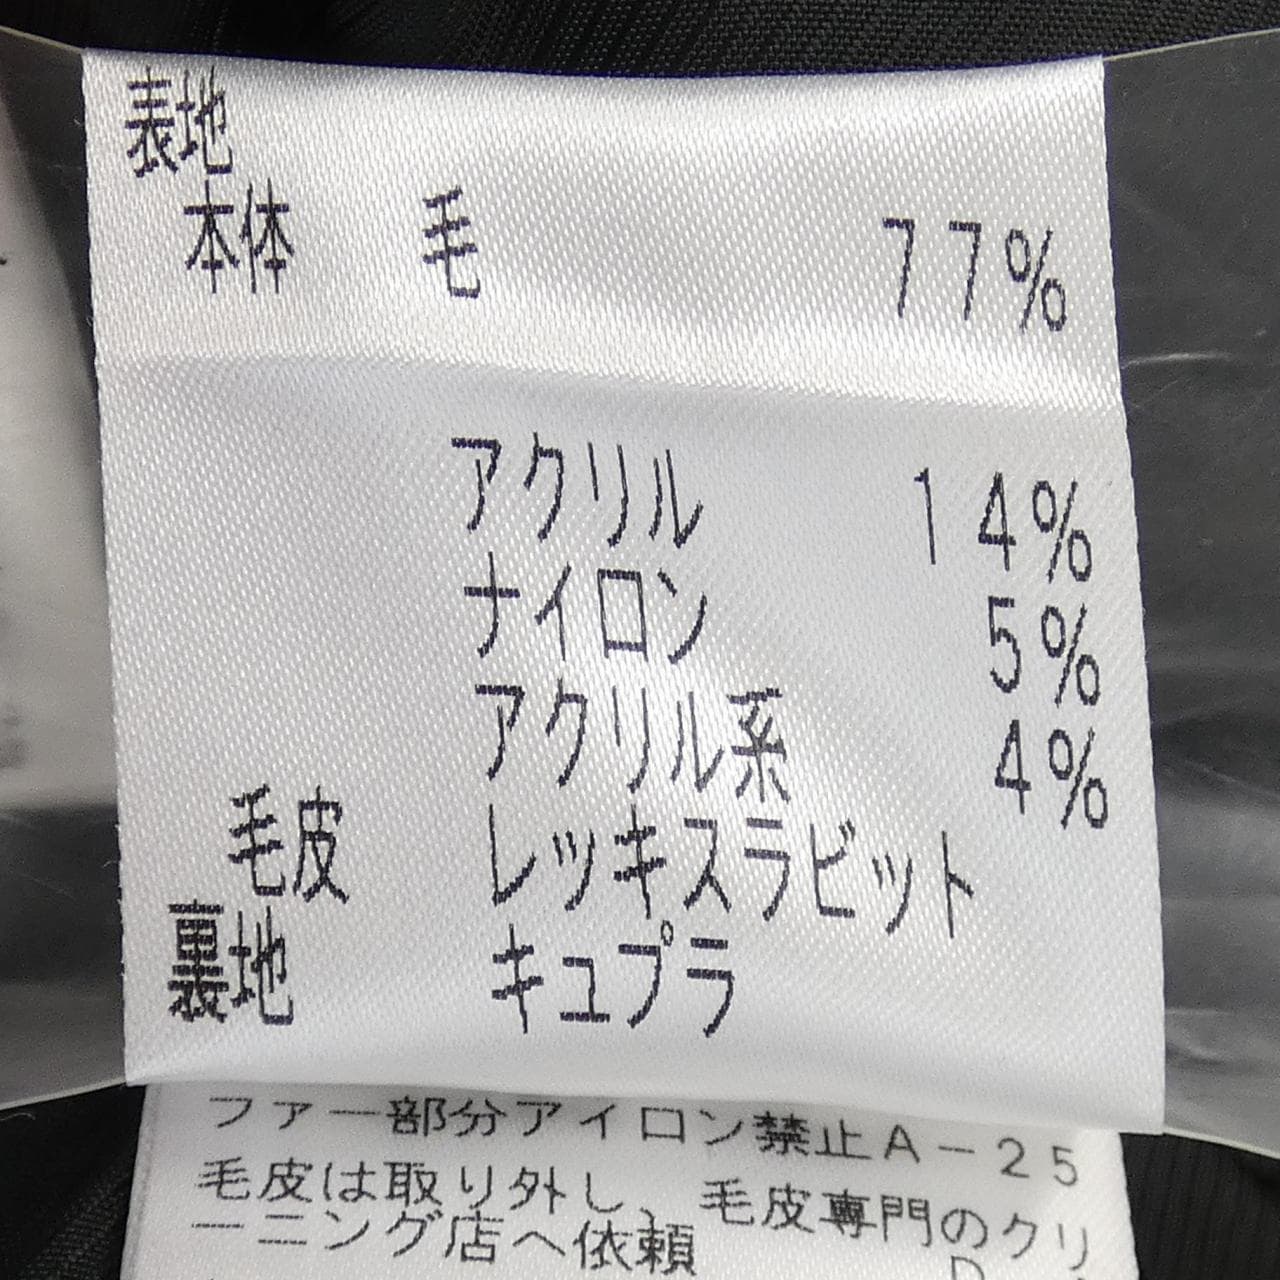 表地
本体 毛 77%
アクリル 14%
ナイロン 5%
アクリル系 4%
毛皮 レッキスラビット
裏地 キュプラ
ファー部分アイロン禁止A-25
毛皮は取り外し、毛皮専門のクリ
ーニング店へ依頼